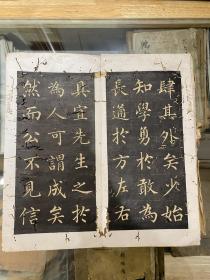 肆其外矣少始
知學勇於敢為
長通於方左右
具宜先生之於
為人可謂成矣
然而公不見信